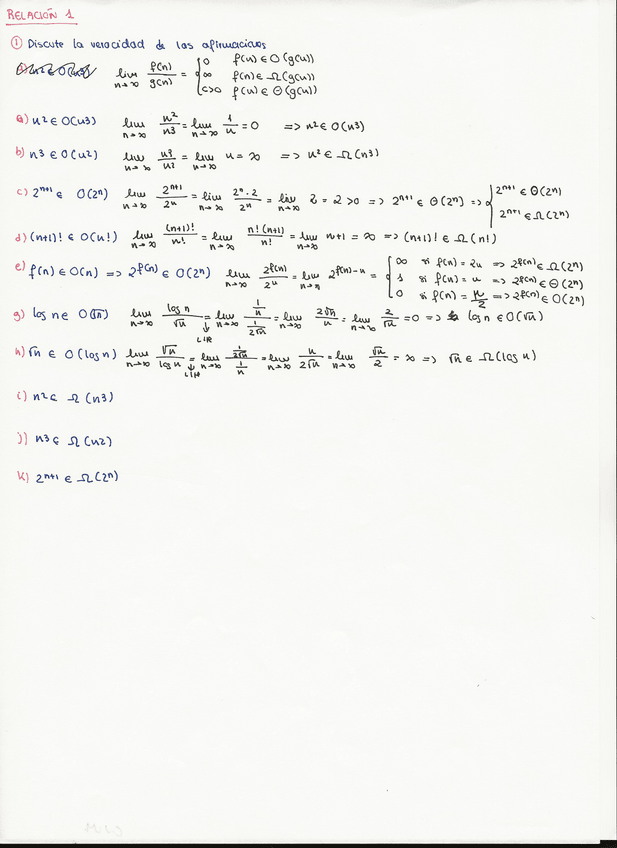 RELACIÓN 1
① Discute la veracidad de las afirmaciones
lim n→∞ f(n)/g(n) = { 0 f(n) ∈ O(g(n))
∞ f(n) ∈ Ω(g(n))
c>0 f(n) ∈ Θ(g(n))
a) n² ∈ O(n3) lim n→∞ n²/n3 = lim n→∞ 1/n = 0 => n² ∈ O(n3)
b) n3 ∈ O(n²) lim n→∞ n3/n² = lim n→∞ n = ∞ => n² ∈ Ω(n3)
c) 2ⁿ⁺¹ ∈ O(2ⁿ) lim n→∞ 2ⁿ⁺¹/2ⁿ = lim n→∞ 2ⁿ·2/2ⁿ = lim n→∞ 2 = 2 > 0 => 2ⁿ⁺¹ ∈ Θ(2ⁿ) => { 2ⁿ⁺¹ ∈ O(2ⁿ)
2ⁿ⁺¹ ∈ Ω(2ⁿ)
d) (n+1)! ∈ O(n!) lim n→∞ (n+1)!/n! = lim n→∞ n!(n+1)/n! = lim n→∞ n+1 = ∞ => (n+1)! ∈ Ω(n!)
e) f(n) ∈ O(n) => 2^f(n) ∈ O(2ⁿ) lim n→∞ 2^f(n)/2ⁿ = lim n→∞ 2^f(n)-n = { ∞ si f(n) = 2n => 2^f(n) ∈ Ω(2ⁿ)
1 si f(n) = n => 2^f(n) ∈ Θ(2ⁿ)
0 si f(n) = n/2 => 2^f(n) ∈ O(2ⁿ)
g) log n ∈ O(√n) lim n→∞ log n/√n = ↓ L'H lim n→∞ (1/n)/(1/2√n) = lim n→∞ 2√n/n = lim n→∞ 2/√n = 0 => log n ∈ O(√n)
h) √n ∈ O(log n) lim n→∞ √n/log n = ↓ L'H lim n→∞ (1/2√n)/(1/n) = lim n→∞ n/2√n = lim n→∞ √n/2 = ∞ => √n ∈ Ω(log n)
i) n² ∈ Ω(n3)
j) n3 ∈ Ω(n2)
k) 2ⁿ⁺¹ ∈ Ω(2ⁿ)